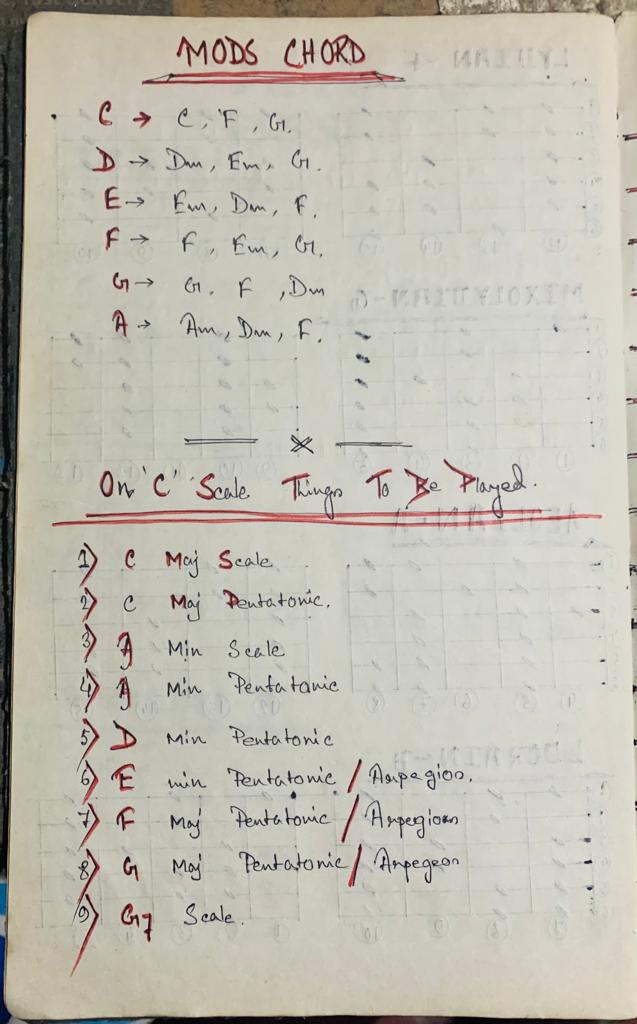 MODS CHORD
C → C, F, G.
D → Dm, Em, G.
E → Em, Dm, F.
F → F, Em, G.
G → G. F, Dm
A → Am, Dm, F.
On 'C' Scale Things To Be Played.
1) C Maj Scale
2) C Maj Pentatonic.
3) A Min Scale
4) A Min Pentatonic
5) D Min Pentatonic
6) E min Pentatonic / Arpegios.
7) F Maj Pentatonic / Arpegios
8) G Maj Pentatonic / Arpegeos
9) G7 Scale.